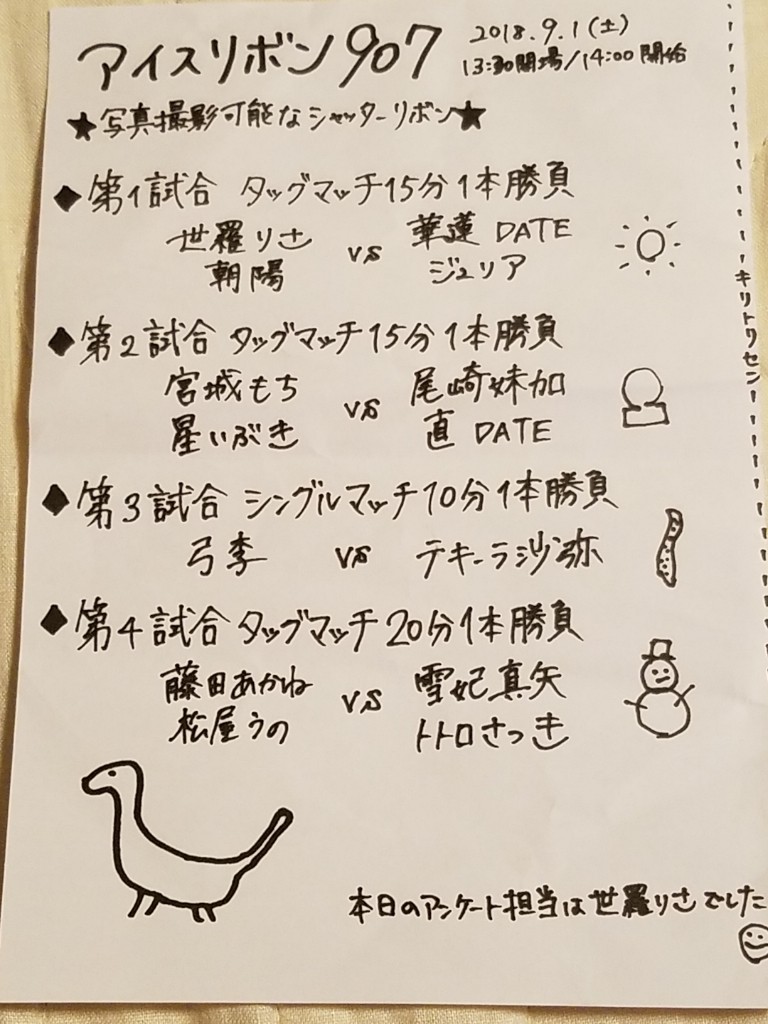 アイスリボン907
2018.9.1(土)
13:30開場/14:00開始
★写真撮影可能なシャッターリボン★
◆第1試合 タッグマッチ15分1本勝負
世羅りさ vs 華蓮 DATE
朝陽 ジュリア
◆第2試合 タッグマッチ15分1本勝負
宮城もち vs 尾崎妹加
星いぶき 直 DATE
◆第3試合 シングルマッチ10分1本勝負
弓李 vs テキーラ沙弥
◆第4試合 タッグマッチ20分1本勝負
藤田あかね vs 雪妃真矢
松屋うの トトロさつき
キリトリセン
本日のアンケート担当は世羅りさでした